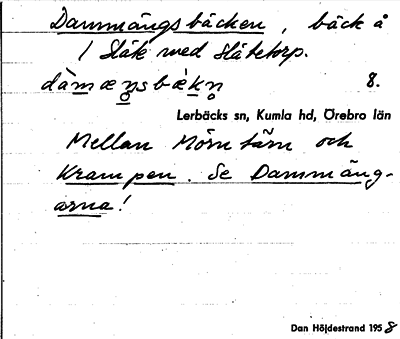 Dammängsbäcken, bäck å
/ Slåk med Slåbetorp.
dàmænsbækn 8.
Lerbäcks sn, Kumla hd, Örebro län
Mellan Mörntärn och
Krampen. Se Dammäng-
arna!
Dan Höjdestrand 1958